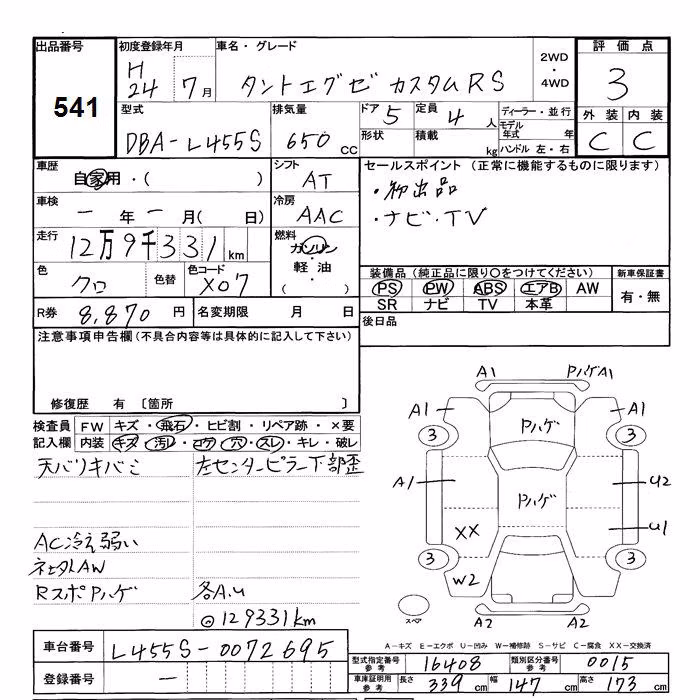 出品番号 初度登録年月 車名・グレード 評価点
541 H24 7月 タントエグゼ カスタムRS 2WD・4WD 3
型式 排気量 ドア 5 定員 4人 ディーラー・並行 外装 内装
DBA-L455S 650cc 形状 積載 kg モデル年式 年 ハンドル 左・右 C C
車歴 シフト セールスポイント (正常に機能するものに限ります)
自家用・( ) AT ・初出品
車検 冷房 ・ナビ・TV
一年一月( 日) AAC
走行 燃料
12万9千331km ガソリン・軽油・( )
色 色替 色コード 装備品(純正品に限り○をつけてください) 新車保証書
クロ X07 PS PW ABS エアB AW 有・無
SR ナビ TV 本革
R券 8,870円 名変期限 月 日 後日品
注意事項申告欄(不具合内容等は具体的に記入して下さい)
修復歴 有 〔箇所 〕
検査員 FW キズ・飛石・ヒビ割・リペア跡・×要
記入欄 内装 キズ・汚レ・コゲ・穴・スレ・キレ・破レ
天バリキバミ 左センターピラー下部歪
AC冷え弱い
ネセタLAW
RスポPハゲ 各A.U
◎129331km
A1 PハゲA1
A1 Pハゲ A1
3 3
A1 Pハゲ U2
XX U1
3 3
W2
スペア A2 A2
A-キズ E-エクボ U-凹み W-補修跡 S-サビ C-腐食 XX-交換済
車台番号 L455S-0072695
登録番号 一
型式指定番号 参考 16408 類別区分番号 参考 0015
車庫証明用 参考 長さ 339cm 幅 147cm 高さ 173cm